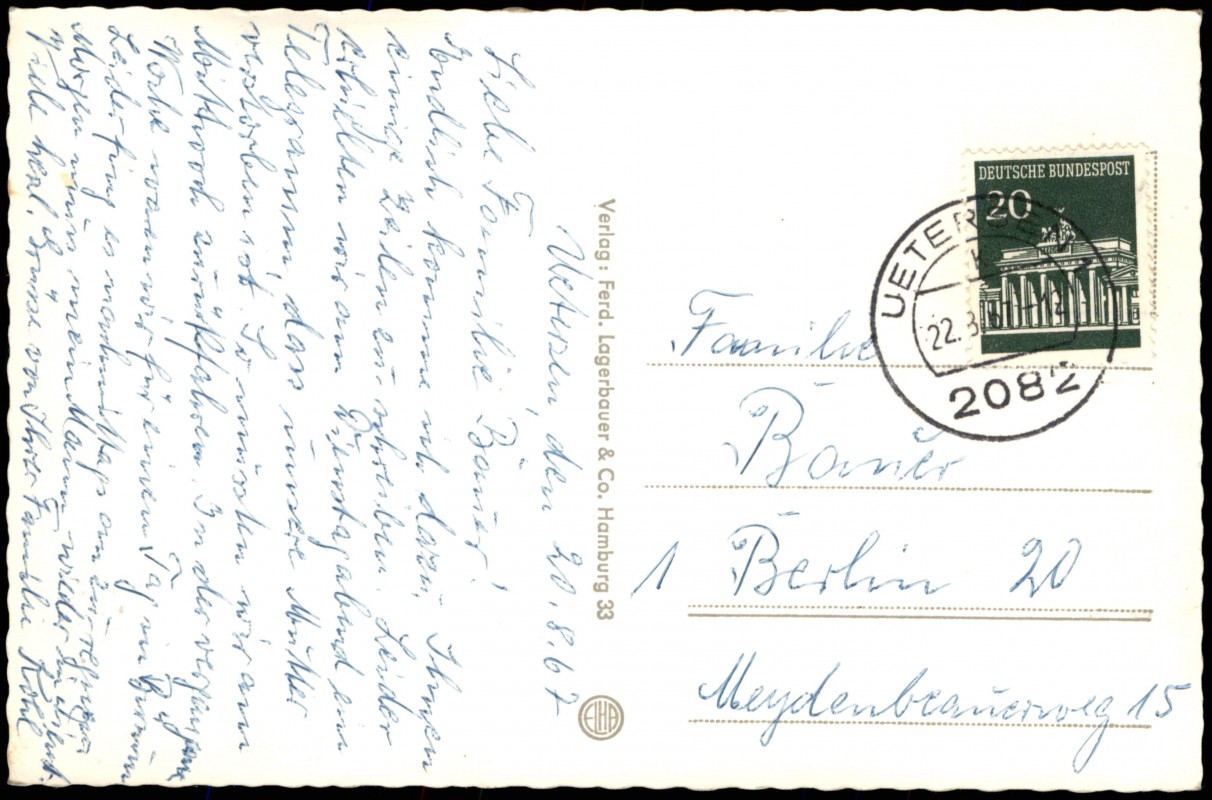 Uetersen, den 20.8.67
Liebe Familie Bauer!
Endlich komme ich dazu, Ihnen
einige Zeilen zu schreiben. Leider
erhielten wir am Dienstagabend ein
Telegramm, dass unsere Mutter
verstorben ist. So mussten wir am
Mittwoch zurückfahren. In der vergangenen
Woche waren wir für einen Tag in Büsum
Leider fing es nachmittags an zu regnen
Morgen muss mein Mann wieder in
Viele herzl. Grüsse von Ihrer Familie Kohl
Verlag: Ferd. Lagerbauer & Co. Hamburg 33
DEUTSCHE BUNDESPOST
20
UETERSEN
22.8.67-12
2082
Familie
Bauer
1 Berlin 20
Meydenbauerweg 15